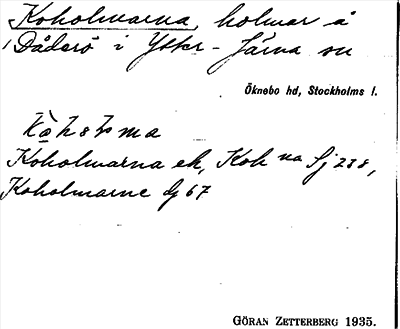 Koholmarna, holmar å
Dåderö i Ytter-Järna sn
Öknebo hd, Stockholms l.
Koholmarna ek, Koh na Sj 238,
Koholmarne dj 67
GÖRAN ZETTERBERG 1935.